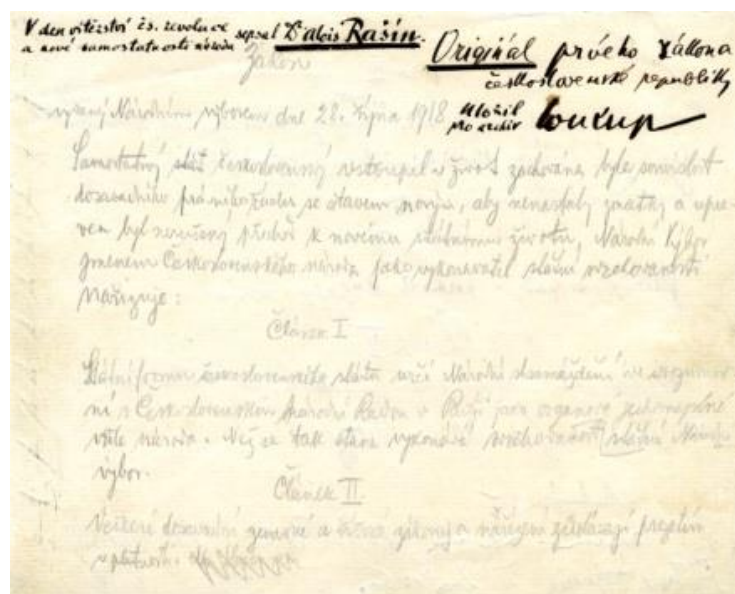 V den vítězství čs. revoluce sepsal Dr Alois Rašín.
a nové samostatnosti národa
Originál prvého zákona
československé republiky
Uložil
pro archiv Soukup
Zákon
vydaný Národním výborem dne 28. října 1918
Samostatný stát československý vstoupil v život zachována byla souvislost
dosavadního právního řádu se stavem novým, aby nenastaly zmatky a upra-
ven byl nerušený přechod k novému státnímu životu, Národní Výbor
jménem Československého národa jako vykonavatel státní svrchovanosti
nařizuje:
Článek I
Státní formu československého státu určí Národní shromáždění ve srozumě-
ní s Československou Národní Radou v Paříži jako orgánové jednomyslné
vůle národa. Než se tak stane vykonává svrchovanost státní Národní
výbor.
Článek II
Veškeré dosavadní zemské a říšské zákony a nařízení zůstávají prozatím
v platnosti.